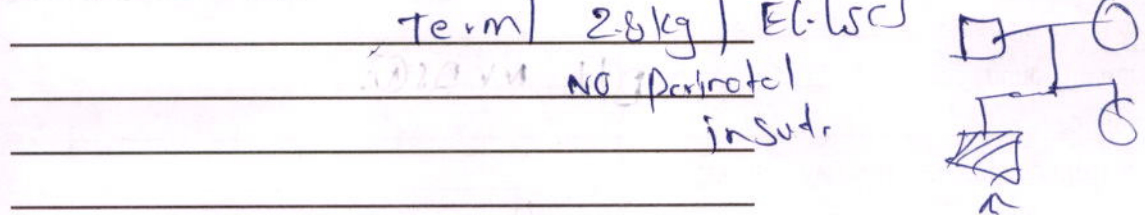 Term | 2.8 kg | El. LSCS
No perinatal
insult.